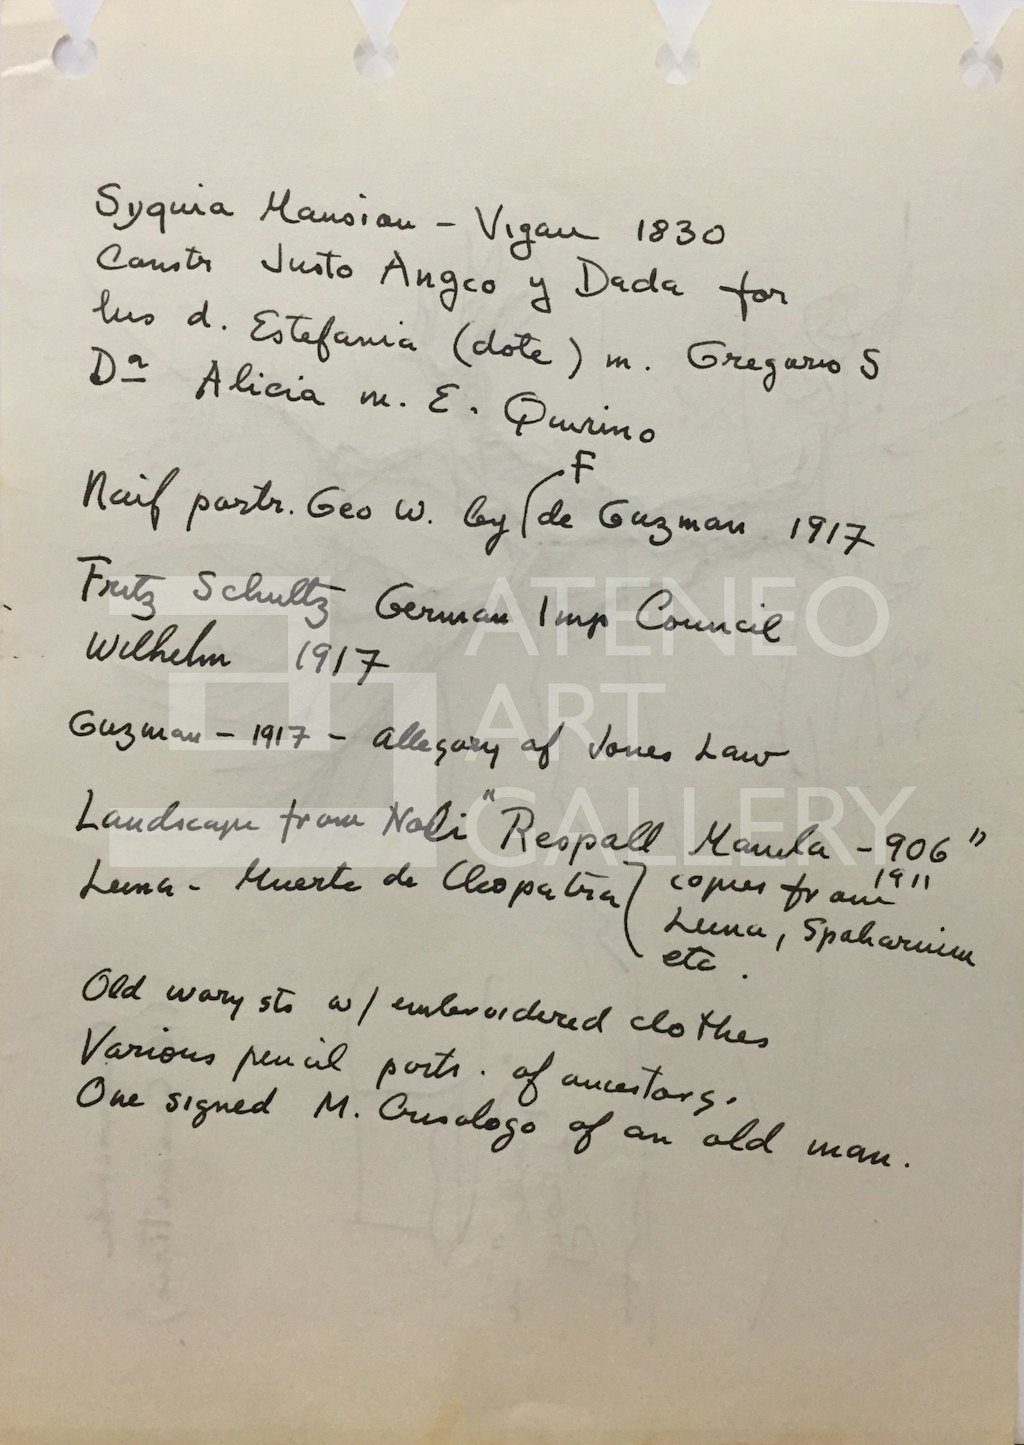 Syquia Mansion - Vigan 1830
Constr Justo Angco y Dada for
his d. Estefania (dote) m. Gregorio S
Dª Alicia m. E. Quirino
F
Naif portr. Geo W. by de Guzman 1917
Fritz Schultz German Imp Council
Wilhelm 1917
Guzman - 1917 - Allegory of Jones Law
Landscape from Noli "Respall Manila - 906"
1911
Luna - Muerte de Cleopatra } copies from
Luna, Spoliarium
etc.
Old ivory sts w/ embroidered clothes
Various pencil portr. of ancestors.
One signed M. Crisologo of an old man.
ATENEO
ART
GALLERY